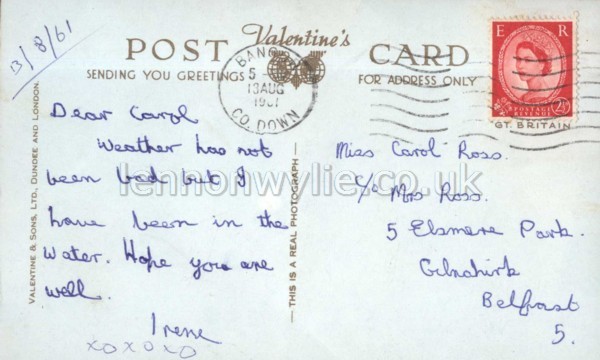 13/8/61
POST Valentine's CARD
SENDING YOU GREETINGS
FOR ADDRESS ONLY
BANG
5
13 AUG
1961
CO. DOWN
E R
POSTAGE
REVENUE
2½D
GT. BRITAIN
Dear Carol
Weather has not
been bad but I
have been in the
water. Hope you are
well.
Irene
xoxoxo
Miss Carol Ross.
c/o Mrs Ross.
5 Elsmere Park.
Gilnahirk
Belfast
5.
VALENTINE & SONS, LTD., DUNDEE AND LONDON.
— THIS IS A REAL PHOTOGRAPH —
lennonwylie.co.uk